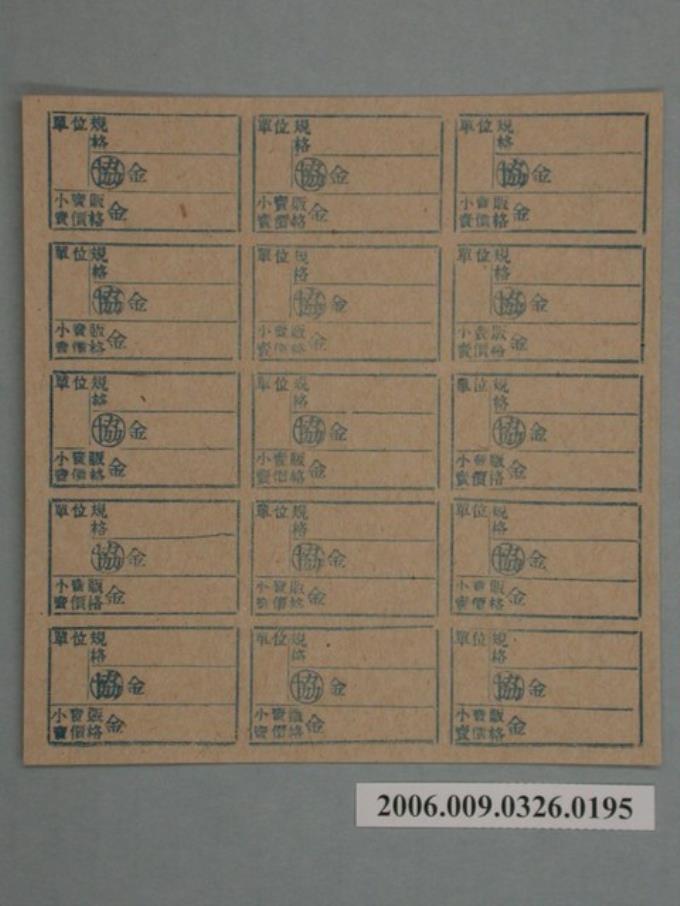 單位規
格
協金
小賣販
賣價格金
單位規
格
協金
小賣販
賣價格金
單位規
格
協金
小賣販
賣價格金
單位規
格
協金
小賣販
賣價格金
單位規
格
協金
小賣販
賣價格金
單位規
格
協金
小賣販
賣價格金
單位規
格
協金
小賣販
賣價格金
單位規
格
協金
小賣販
賣價格金
單位規
格
協金
小賣販
賣價格金
單位規
格
協金
小賣販
賣價格金
單位規
格
協金
小賣販
賣價格金
單位規
格
協金
小賣販
賣價格金
單位規
格
協金
小賣販
賣價格金
單位規
格
協金
小賣販
賣價格金
單位規
格
協金
小賣販
賣價格金
2006.009.0326.0195